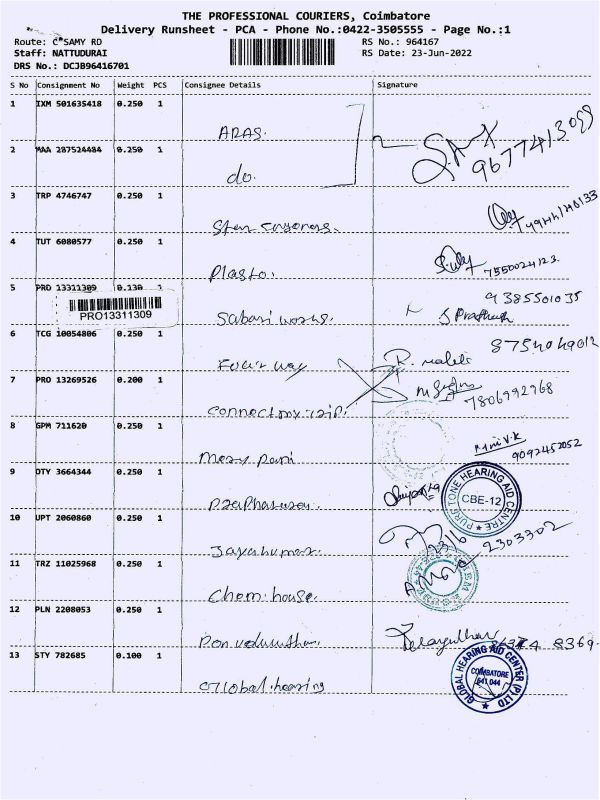 THE PROFESSIONAL COURIERS, Coimbatore
Delivery Runsheet - PCA - Phone No.:0422-3505555 - Page No.:1
Route: C*SAMY RD
RS No.: 964167
Staff: NATTUDURAI
RS Date: 23-Jun-2022
DRS No.: DCJB96416701
S No Consignment No Weight PCS Consignee Details Signature
1 IXM 501635418 0.250 1
ARAS.
9677413099
2 MAA 287524484 0.250 1
do.
3 TRP 4746747 0.250 1
4 TUT 6080577 0.250 1
Plasto. 7550024123
5 PRO 13311309 0.130 1
9385501035
PRO13311309
Sabari works. S Prasanth
6 TCG 10054806 0.250 1
8754049012
Four way
7 PRO 13269526 0.200 1
7806992968
8 GPM 711620 0.250 1
Mini V.K
9092452052
9 DTY 3664344 0.250 1
PURE TONE HEARING AID CENTRE
CBE-12
10 UPT 2060860 0.250 1
23/6
2303302
Jayakumar.
11 TRZ 11025968 0.250 1
Chem.house.
12 PLN 2208053 0.250 1
8369
13 STY 782685 0.100 1
Global.hearing
GLOBAL HEARING AID CENTER (P) LTD
COIMBATORE
641 044